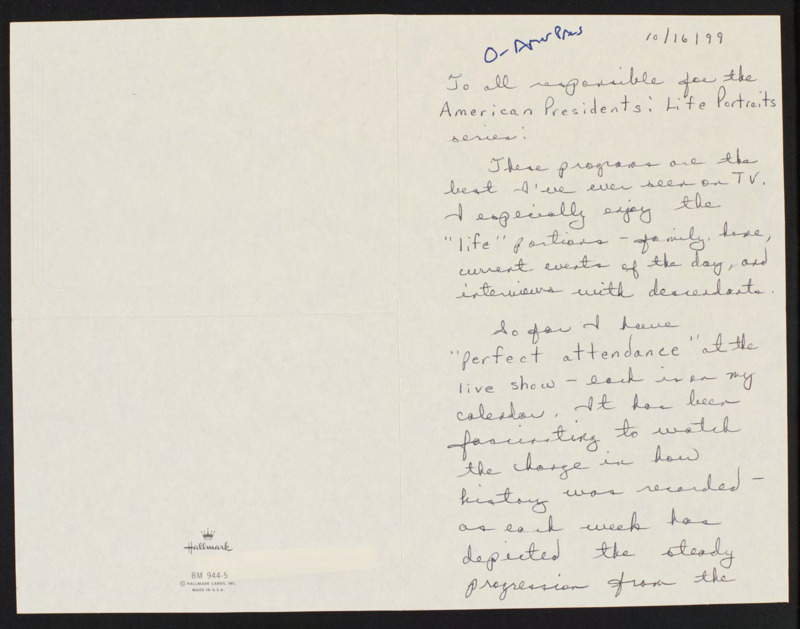 10/16/99
To all responsible for the
American Presidents: Life Portraits
series:
These programs are the
best I've ever seen on TV.
I especially enjoy the
"life" portions – family, home,
current events of the day, and
interviews with descendants.
So far I have
"perfect attendance" at the
live show – each is on my
calendar. It has been
fascinating to watch
the change in how
history was recorded –
as each week has
depicted the steady
progression from the
Hallmark
BM 944-5
© HALLMARK CARDS, INC.
MADE IN U.S.A.